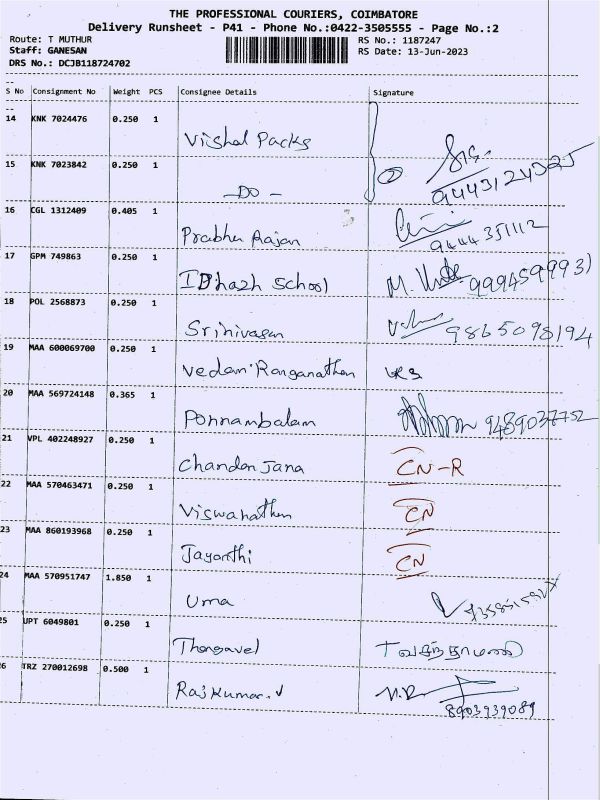 THE PROFESSIONAL COURIERS, COIMBATORE
Delivery Runsheet - P41 - Phone No.:0422-3505555 - Page No.:2
Route: T MUTHUR
RS No.: 1187247
Staff: GANESAN
RS Date: 13-Jun-2023
DRS No.: DCJB118724702
S No Consignment No Weight PCS Consignee Details Signature
14 KNK 7024476 0.250 1
Vishal Packs
15 KNK 7023842 0.250 1
9443124325
-DO-
16 CGL 1312409 0.405 1
Prabhu Rajan 9444351112
17 GPM 749863 0.250 1
IDhazh School M. 999459993)
18 POL 2568873 0.250 1
Srinivasan 9865098194
19 MAA 600069700 0.250 1
Vedam Ranganathan
20 MAA 569724148 0.365 1
Ponnambalam 9489037752
21 VPL 402248927 0.250 1
Chandan Jana CN-R
22 MAA 570463471 0.250 1
Viswanathan CN
23 MAA 860193968 0.250 1
Jayanthi CN
24 MAA 570951747 1.850 1
Uma
25 UPT 6049801 0.250 1
Thangavel
26 TRZ 270012698 0.500 1
Rajkumar.
8903939089